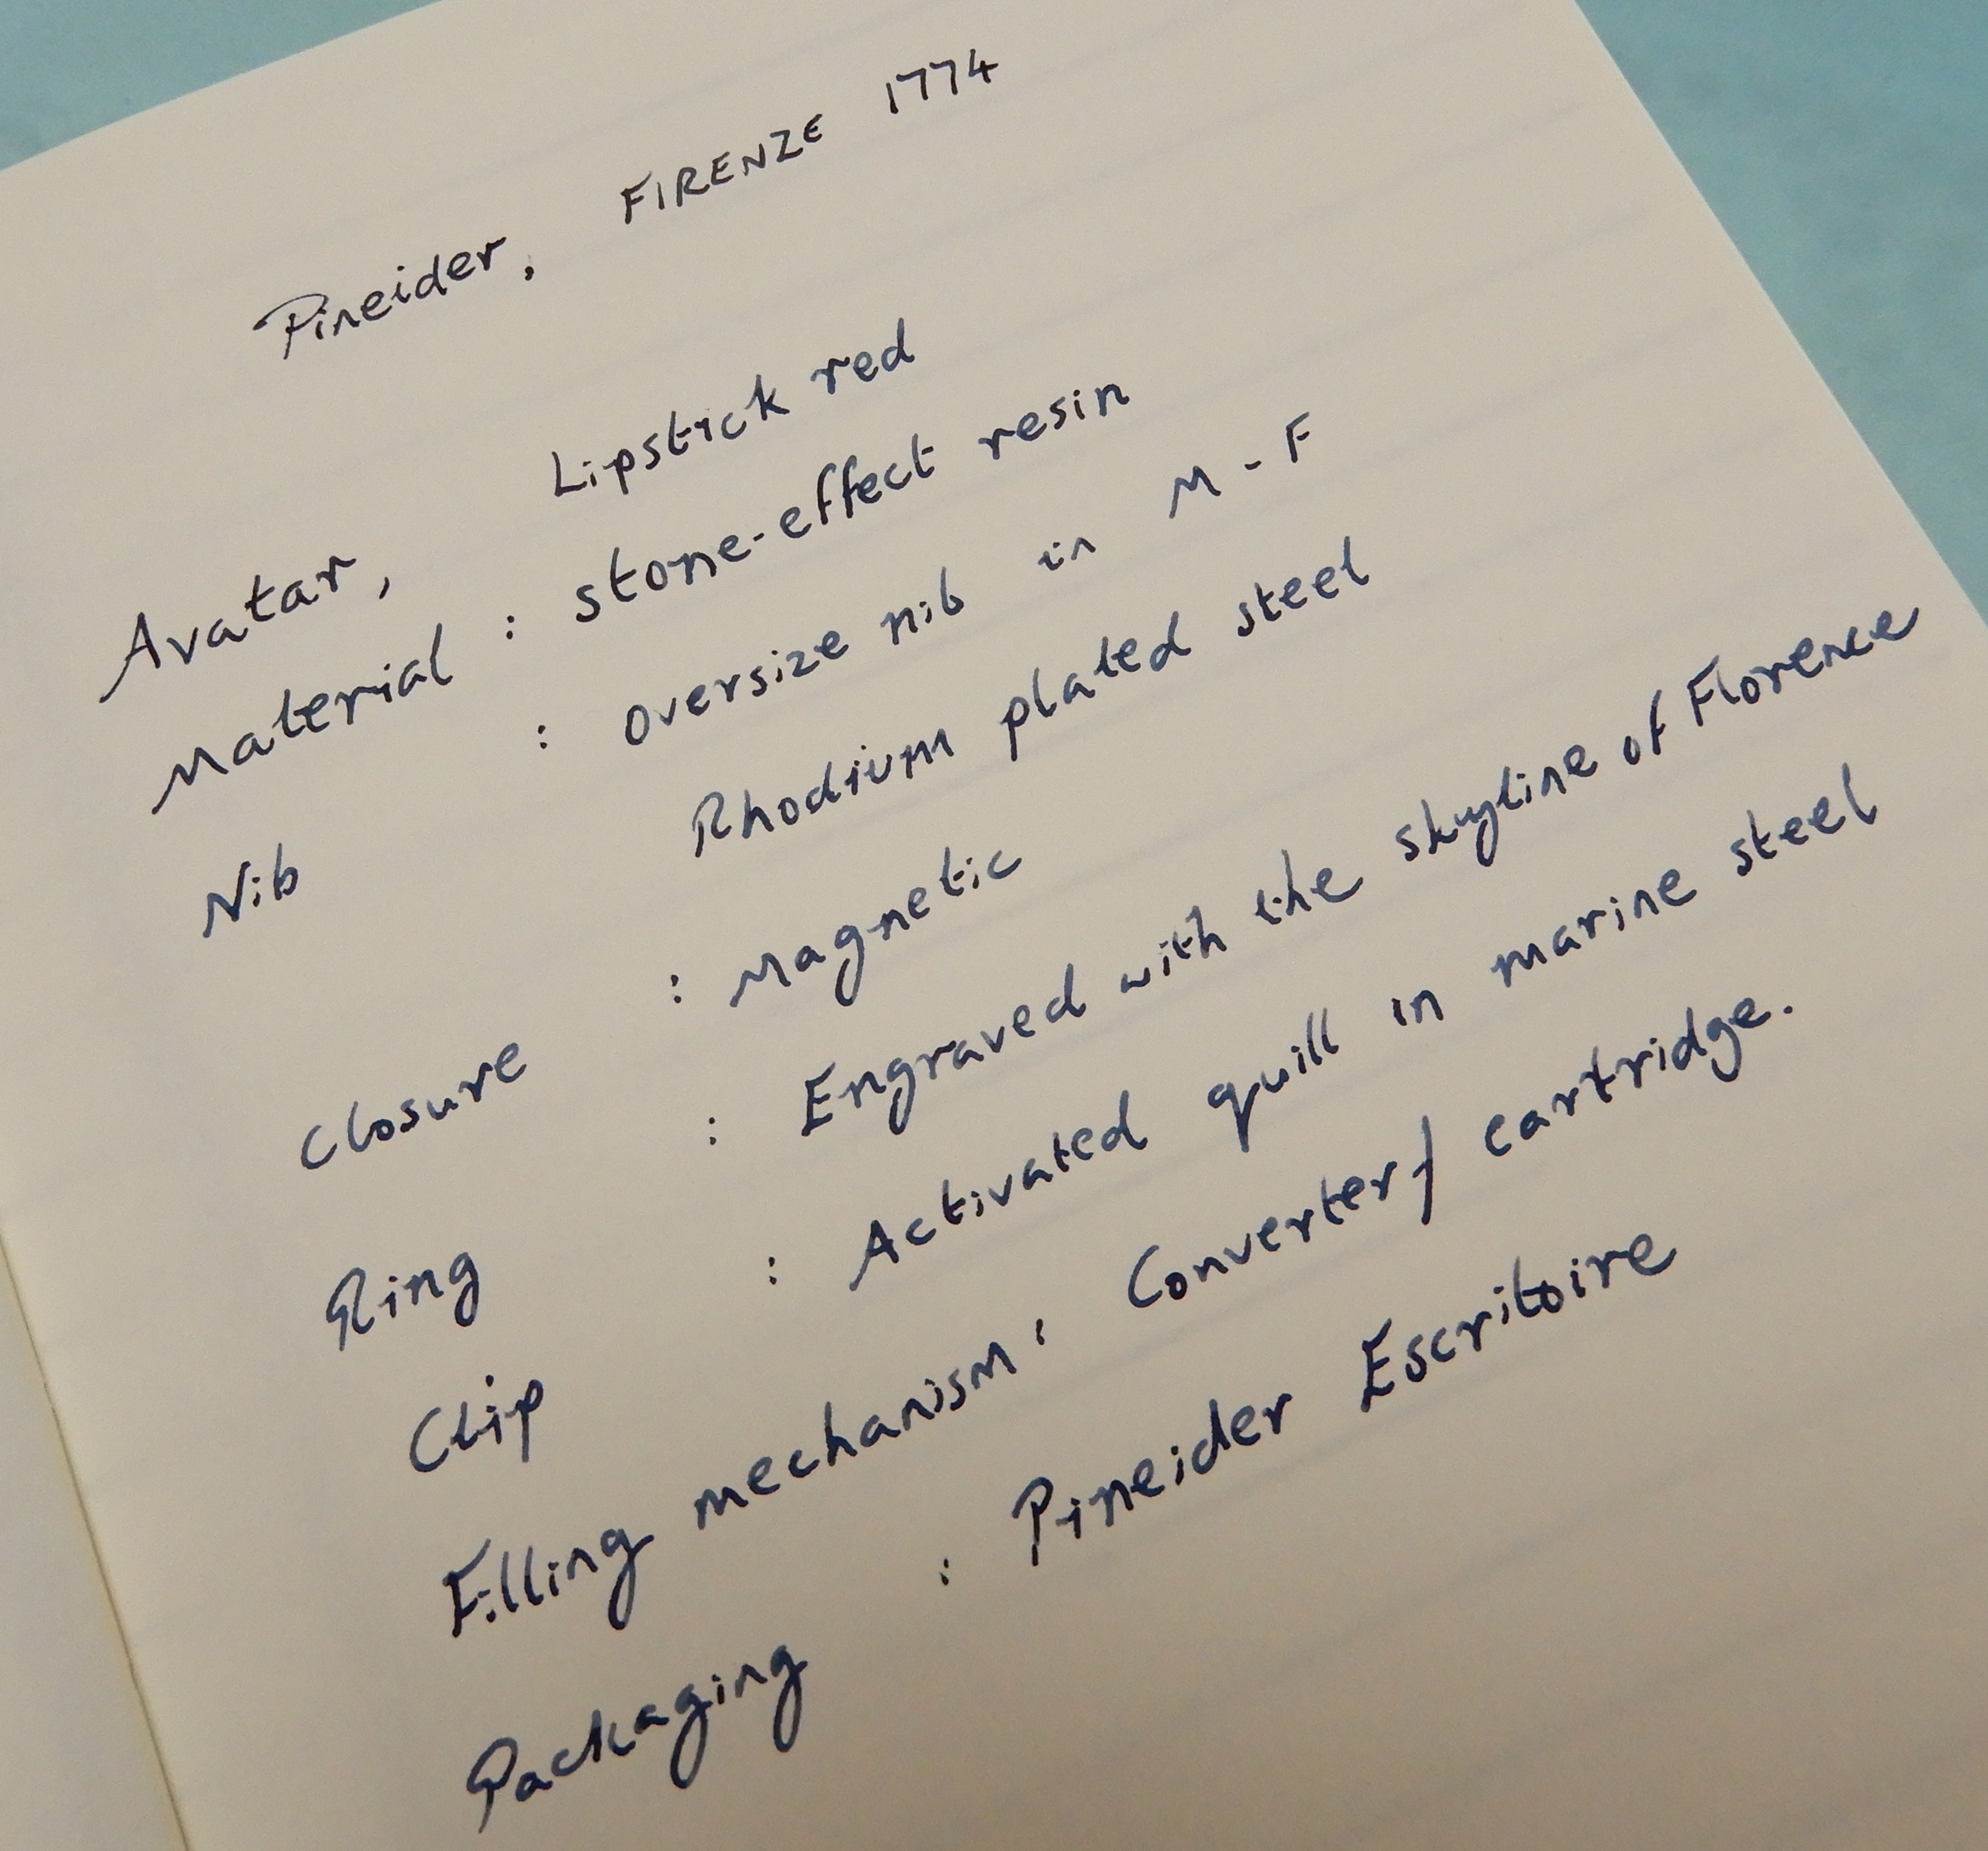 Pineider, FIRENZE 1774
Avatar, Lipstick red
Material : stone-effect resin
Nib : oversize nib in M - F
Rhodium plated steel
Closure : Magnetic
Ring : Engraved with the skyline of Florence
Clip : Activated quill in marine steel
Filling mechanism : Converter / cartridge.
Packaging : Pineider Escritoire